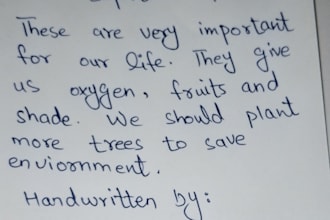 These are very important
for our life. They give
us oxygen, fruits and
shade. We should plant
more trees to save
enviornment.
Handwritten by: